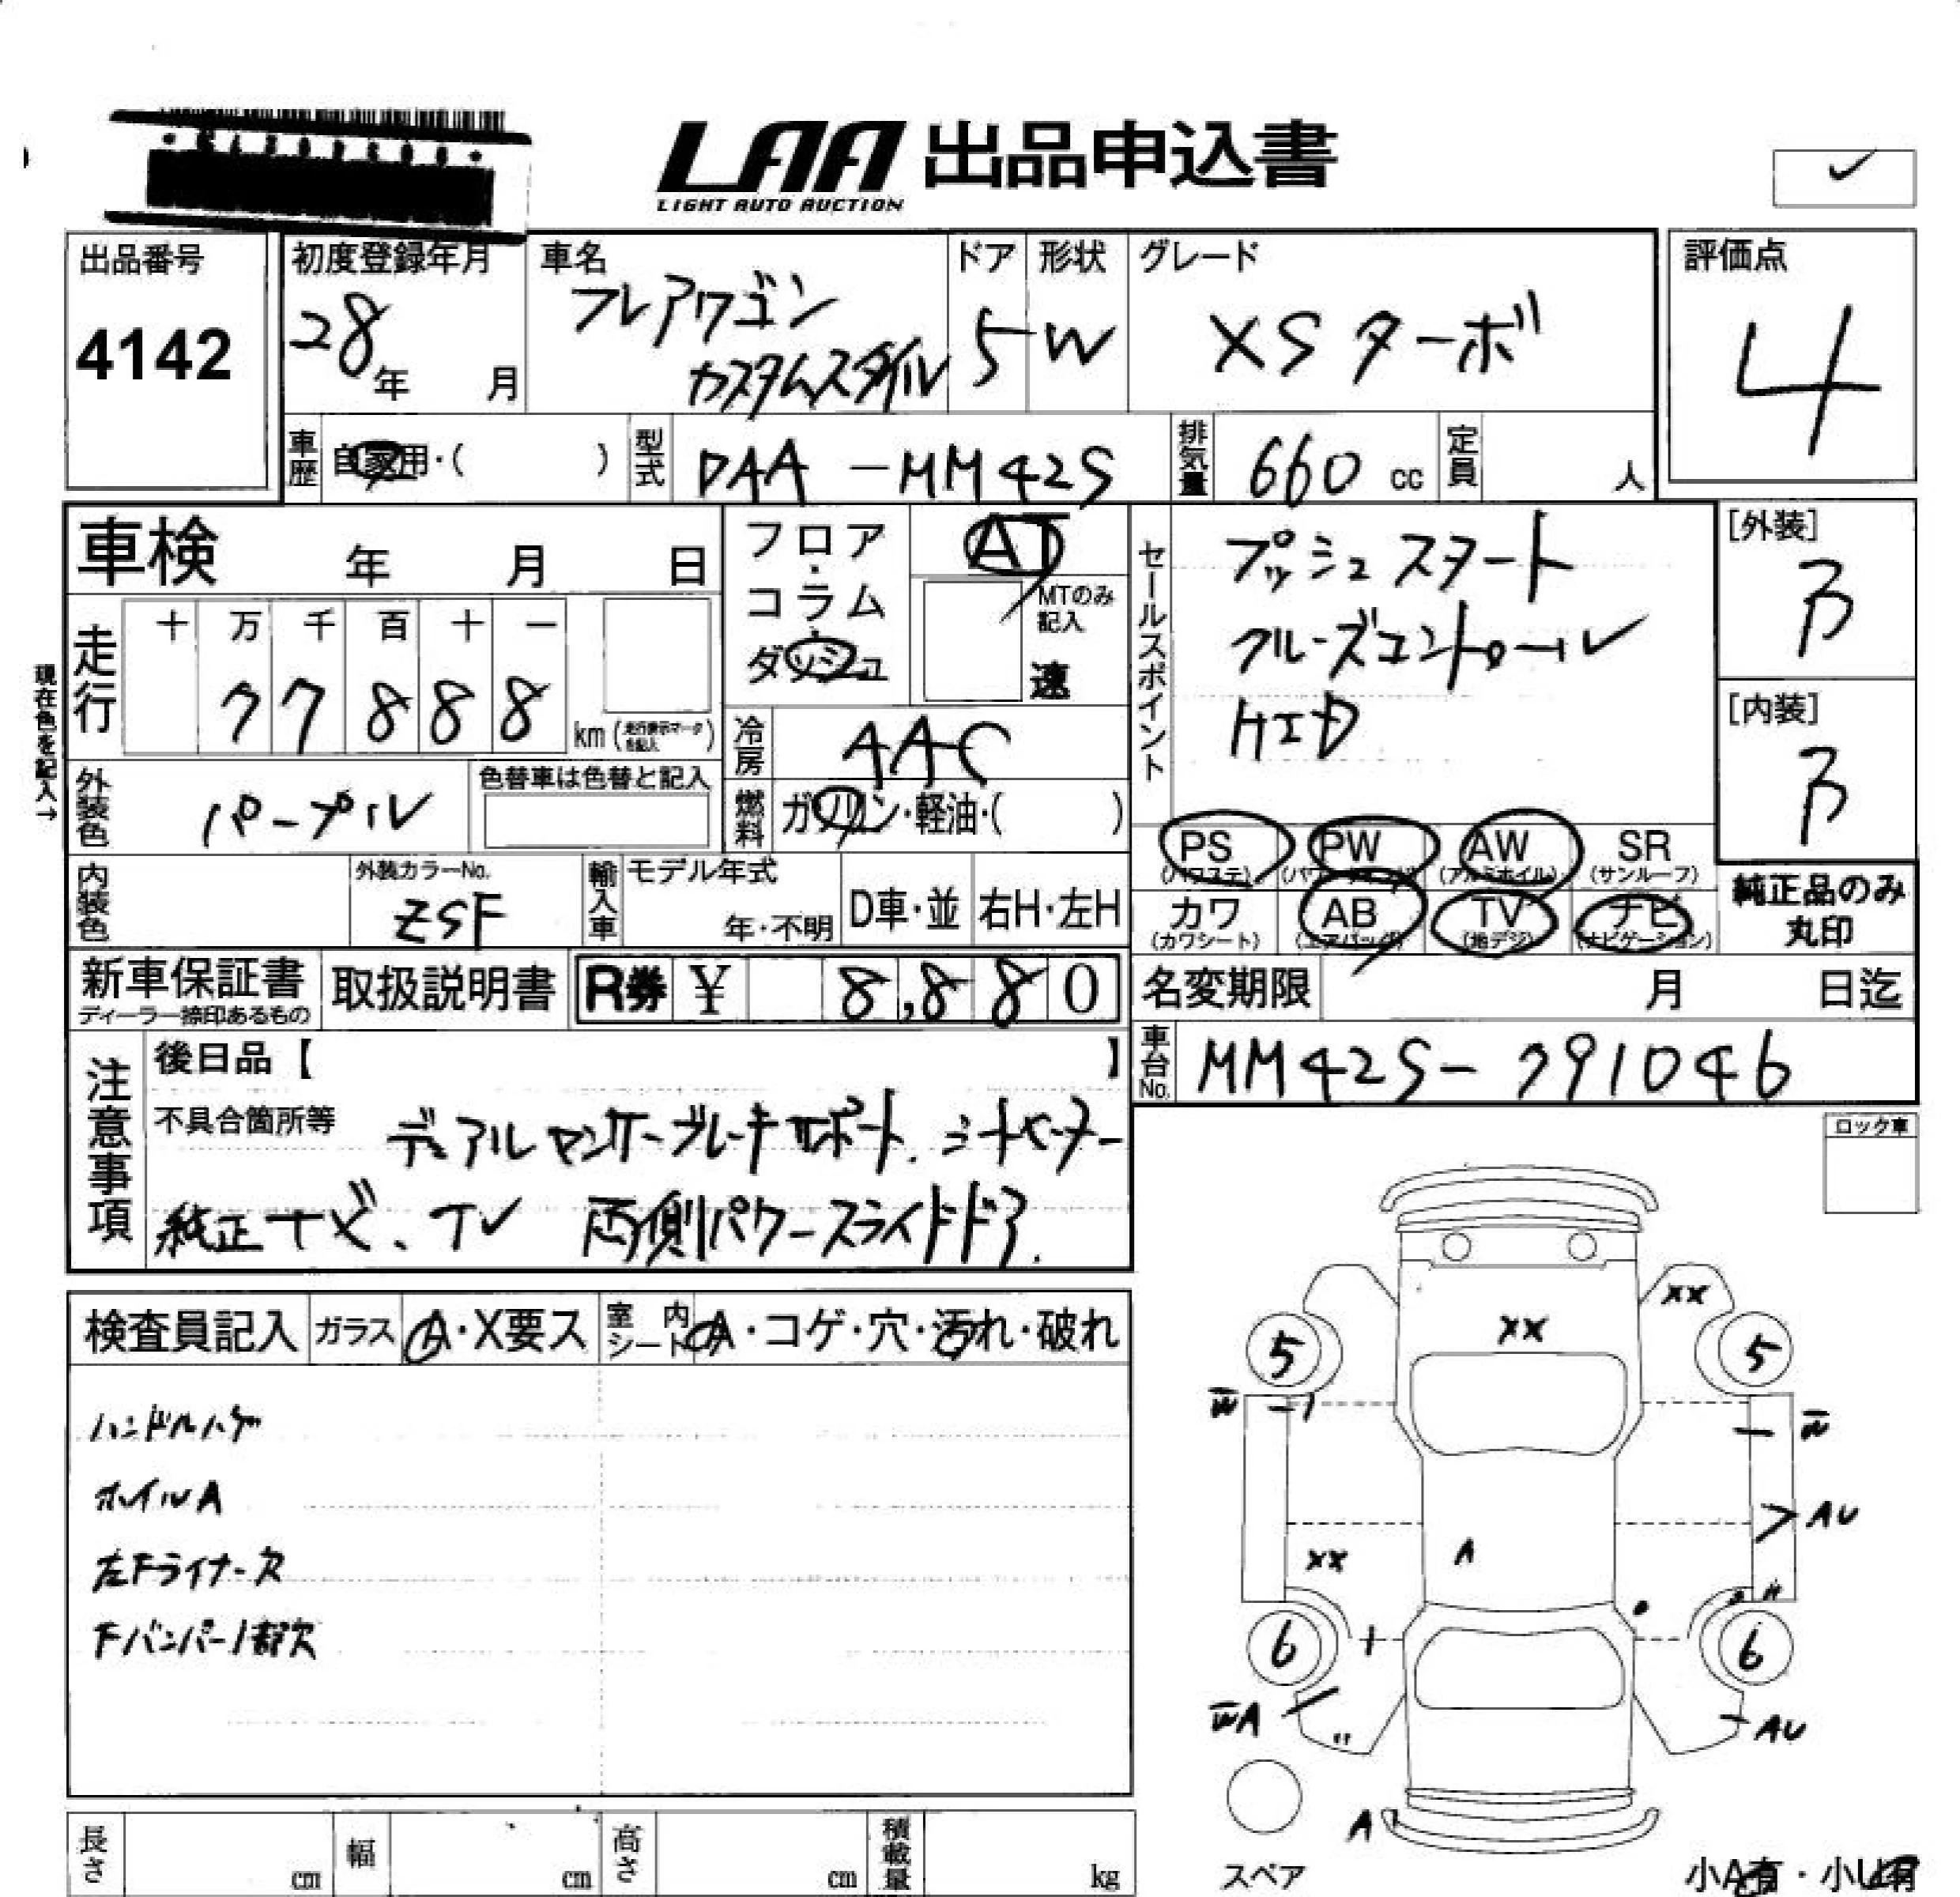 LAA 出品申込書
LIGHT AUTO AUCTION
出品番号
4142
初度登録年月
28年 月
車名
フレアワゴン
カスタムスタイル
ドア
5
形状
W
グレード
XSターボ
評価点
4
車歴
自家用・( )
型式
DAA-MM42S
排気量
660 cc
定員
人
車検 年 月 日
フロア・コラム・ダッシュ
AT
MTのみ記入
速
セールスポイント
プッシュスタート
クルーズコントロール
HID
[外装]
B
[内装]
B
現在色を記入→
走行
十 万 千 百 十 一
7 7 8 8 8
km (走行表示マークを記入)
冷房
AAC
外装色
パープル
色替車は色替と記入
燃料
ガソリン・軽油・( )
PS AW PW SR
(パワステ) (アルミホイル) (サンルーフ)
カワ AB TV ナビ
(カワシート) (エアバッグ) (地デジ) (ナビゲーション)
純正品のみ
丸印
内装色
外装カラーNo.
ZSF
輸入車
モデル年式
年・不明
D車・並
右H・左H
新車保証書
ディーラー捺印あるもの
取扱説明書
R券 ¥ 8,880
名変期限 月 日迄
車台No.
MM42S-791046
注意事項
後日品【 】
不具合箇所等 デュアルセンサーブレーキサポート. シートヒーター
純正ナビ、TV 両側パワースライドドア.
ロック車
検査員記入
ガラス A・X要ス
室内シート A・コゲ・穴・汚れ・破れ
ハンドルハゲ
ホイルA
左Fライナー欠
Fバンパー1部欠
XX
XX
5
5
W
W
AU
XX
A
6
6
WA
AU
A
スペア
小A有・小U有
長さ cm
幅 cm
高さ cm
積載量 kg